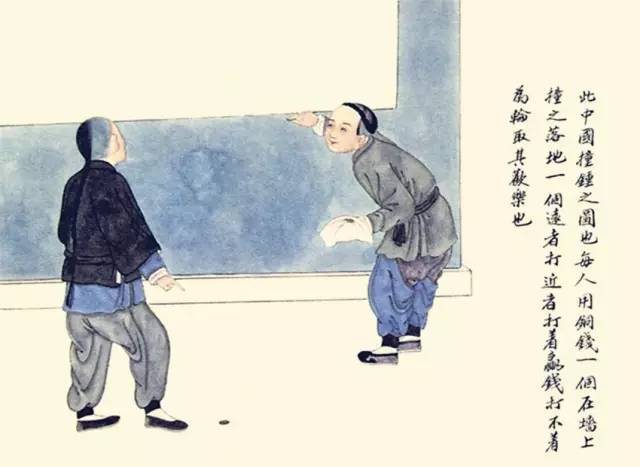 此中國撞鍾之圖也每人用銅錢一個在墙上
撞之落地一個遠者打近者打着贏錢打不着
為輸取其歡樂也